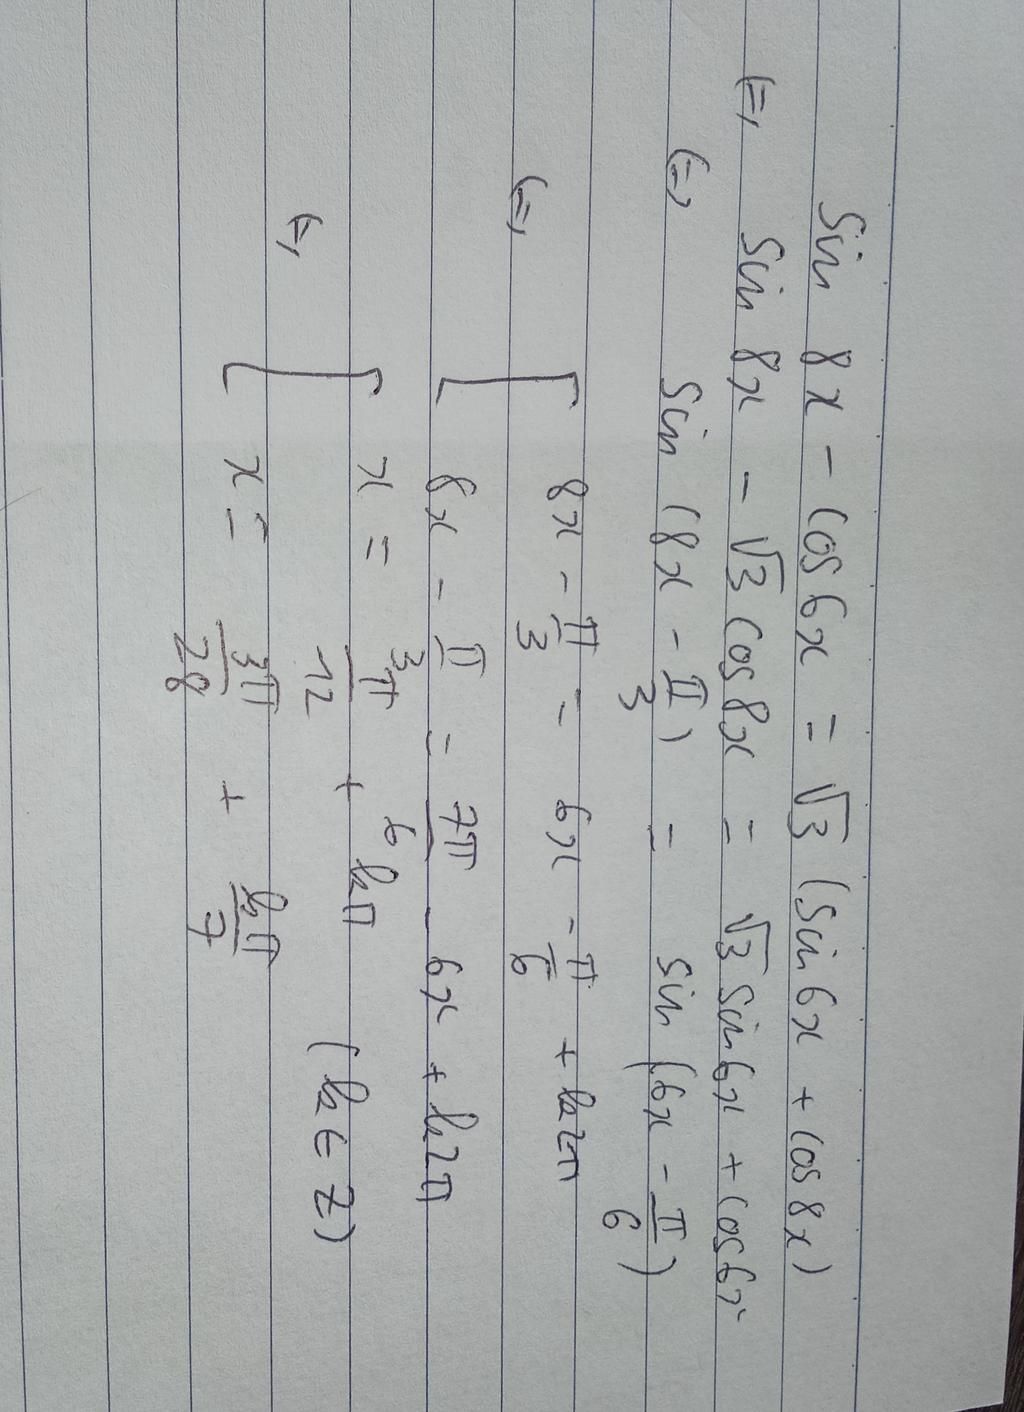 sin 8x - cos 6x = √3 (sin 6x + cos 8x)
(=) sin 8x - √3 cos 8x = √3 sin 6x + cos 6x
(=) sin (8x - π/3) = sin (6x - π/6)
(=) [ 8x - π/3 = 6x - π/6 + k2π
8x - π/3 = 7π/6 - 6x + k2π
(=) [ x = π/12 + kπ (k ∈ Z)
x = 3π/28 + kπ/7